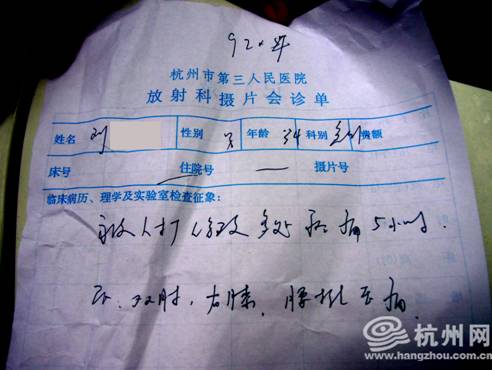 杭州市第三人民医院
放射科摄片会诊单
姓名 刘 性别 男 年龄 34 科别 急 费额
床号 住院号 — 摄片号
临床病历、理学及实验室检查征象:
被人打 多处 疼痛 5小时.
双肘, 右膝, 腰椎 压痛.
杭州网
www.hangzhou.com.cn